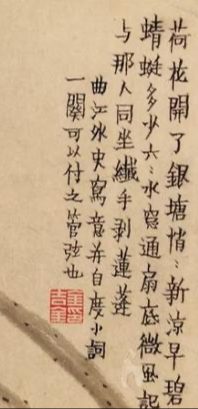 荷花開了銀塘悄〻新涼早碧
蜻蜓多少六〻水窗通扇底微風記
与那人同坐纖手剝蓮蓬
曲江外史寫意并自度小詞
一闋可以付之管弦也